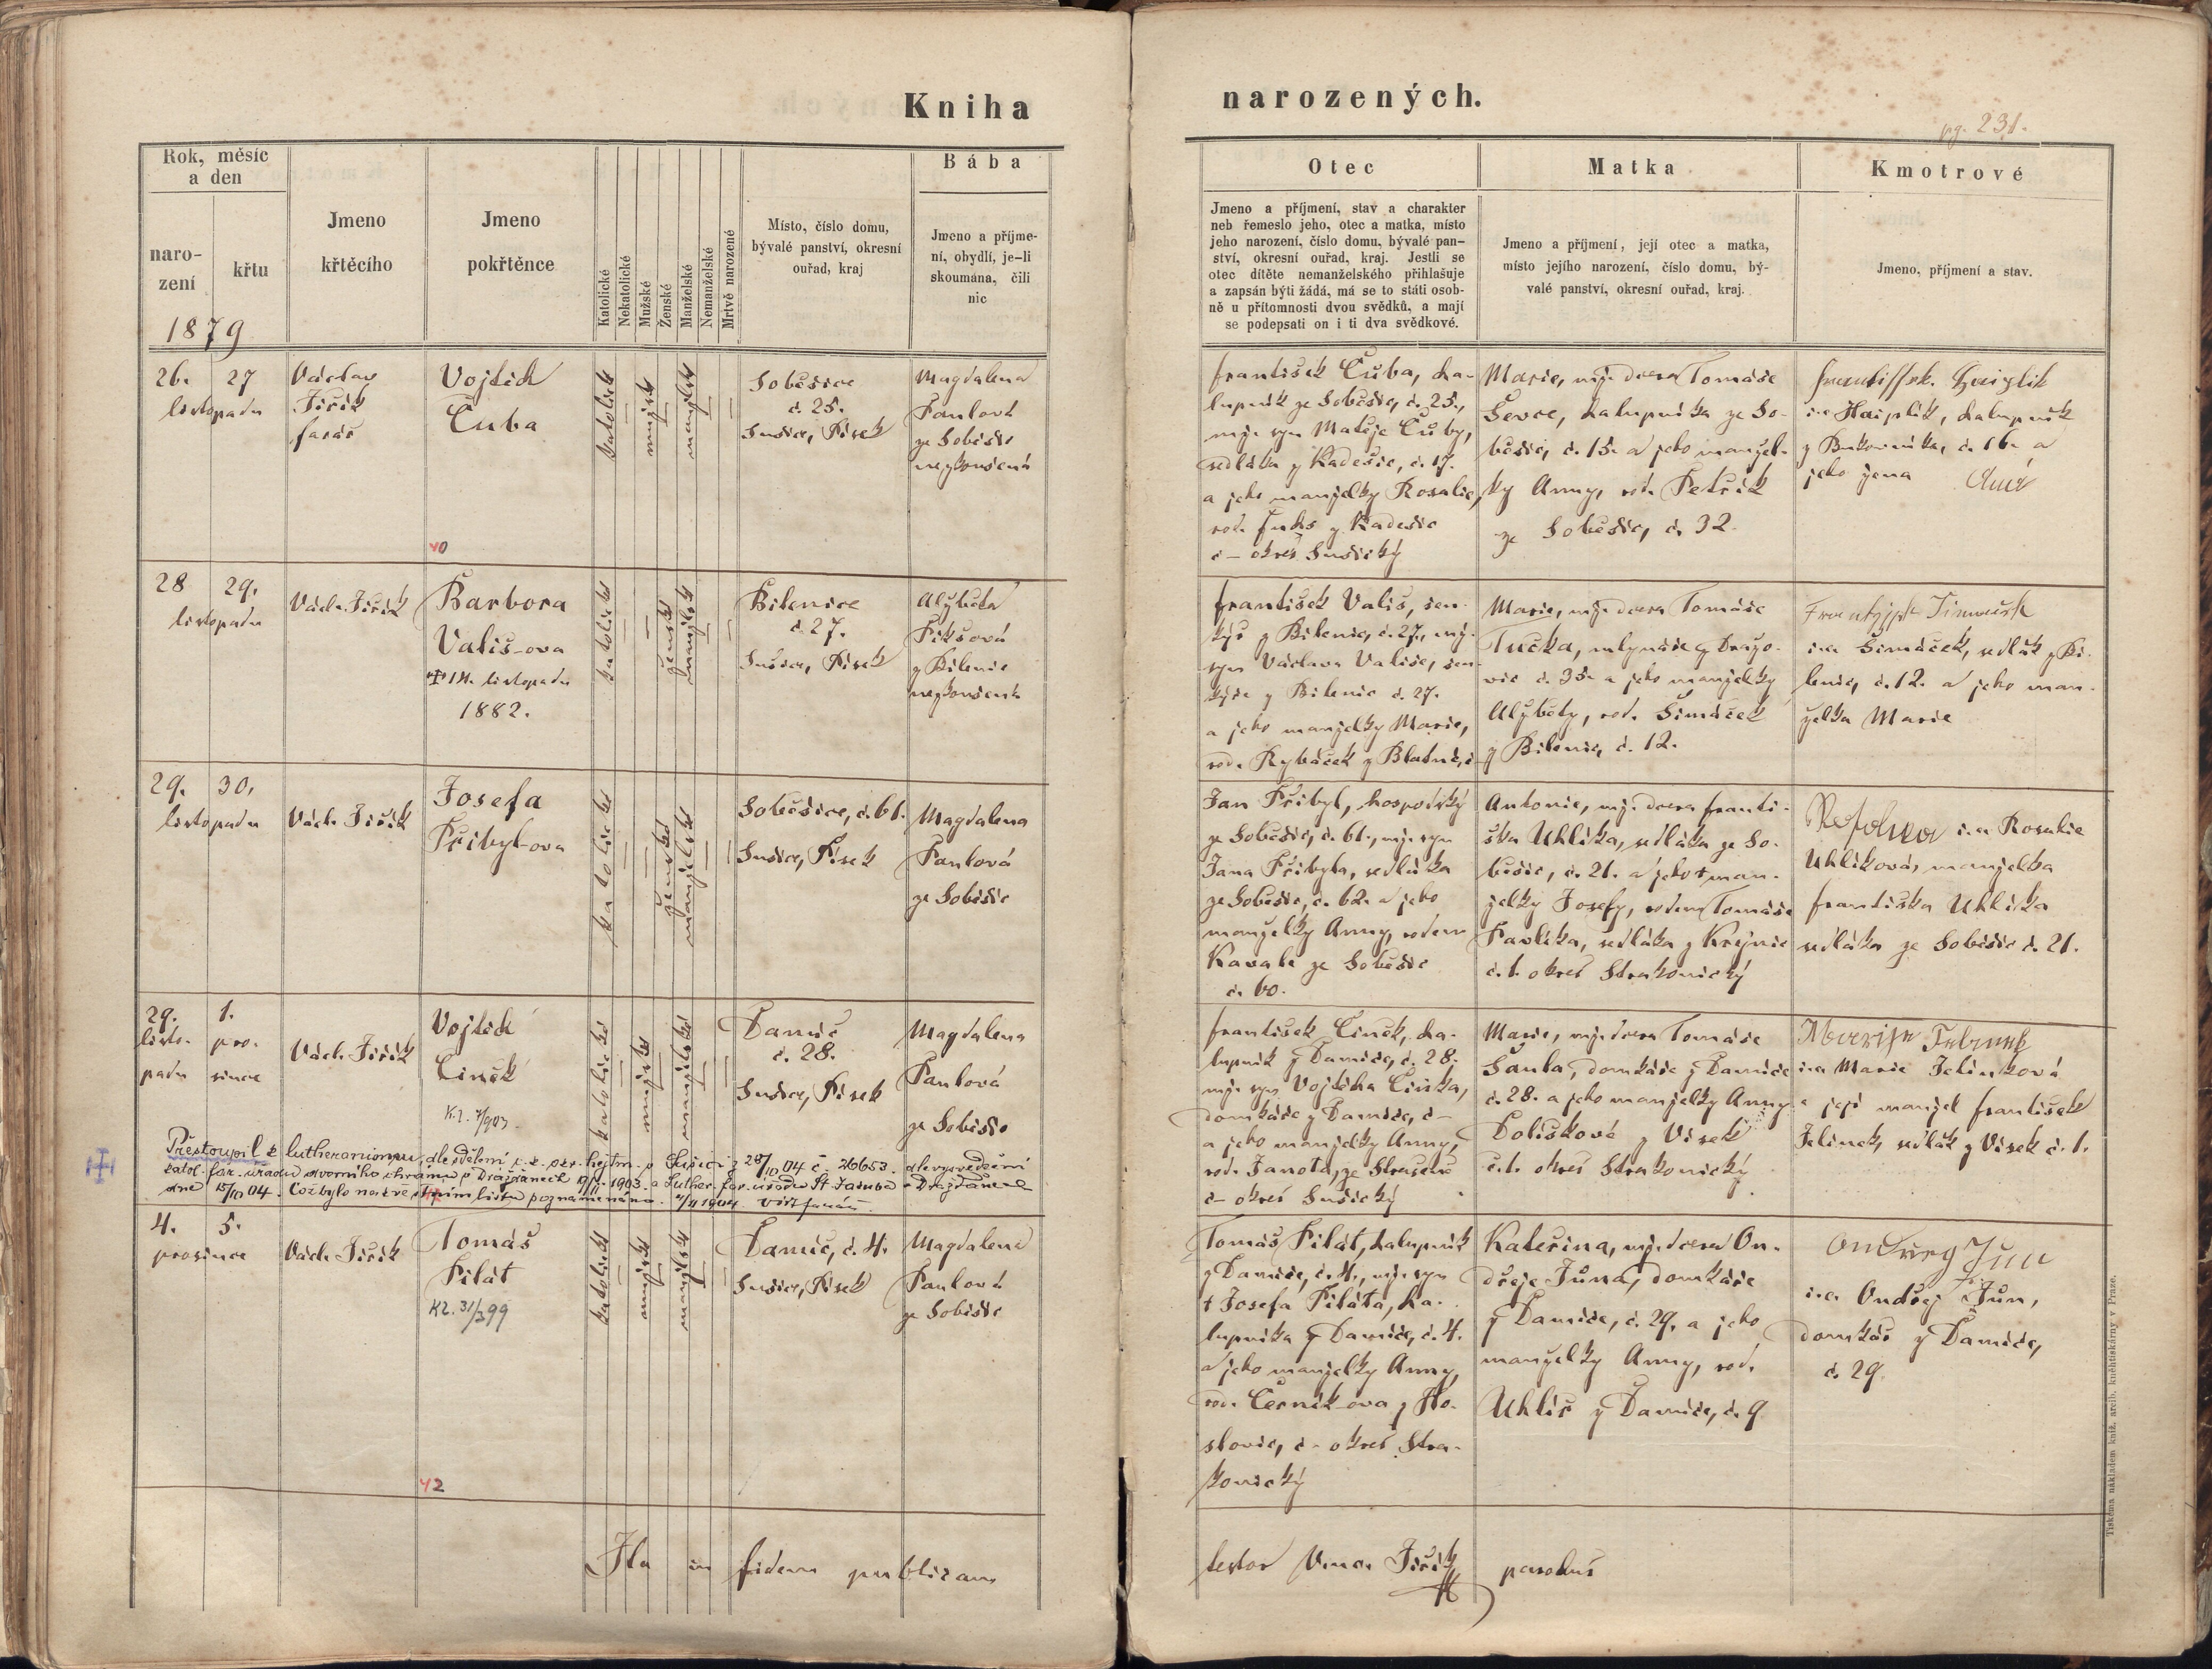 Kniha
narozených.
pg. 231.
Rok, měsíc
a den
naro-
zení
křtu
1879
Jmeno
křtěcího
Jmeno
pokřtěnce
Katolické
Nekatolické
Mužské
Ženské
Manželské
Nemanželské
Mrtvě narozené
Místo, číslo domu,
bývalé panství, okresní
ouřad, kraj
Bába
Jmeno a příjme-
ní, obydlí, je-li
skoumána, čili
nic
Otec
Jmeno a příjmení, stav a charakter
neb řemeslo jeho, otec a matka, místo
jeho narození, číslo domu, bývalé pan-
ství, okresní ouřad, kraj. Jestli se
otec dítěte nemanželského přihlašuje
a zapsán býti žádá, má se to státi osob-
ně u přítomnosti dvou svědků, a mají
se podepsati on i ti dva svědkové.
Matka
Jmeno a příjmení, její otec a matka,
místo jejího narození, číslo domu, bý-
valé panství, okresní ouřad, kraj.
Kmotrové
Jmeno, příjmení a stav.
26. 27
listopadu
Václav
Jiřík
farář
Vojtěch
Čuba
katolické
mužské
manželské
Soběšice
č. 25.
Sušice, Písek
Magdalena
Pavlová
ze Soběšic
nezkoušená
František Čuba, cha-
lupník ze Soběšic, č. 25.,
syn Matěje Čuby,
sedláka z Kadešic, č. 17.
a jeho manželky Rosalie,
rod. Fuks z Kadešic
č – okres Sušický
Marie, dcera Tomáše
Ševce, chalupníka ze So-
běšic, č. 15. a jeho manžel-
ky Anny, rod. Petřík
ze Soběšic, č. 32.
chalupník
č. 16. a
jeho žena
40
28 29.
listopadu
Václ. Jiřík
Barbora
Vališ-ova
14. listopadu
1882.
katolické
ženské
manželské
Bílenice
č. 27.
Sušice, Písek
Alžběta
Fiksová
z Bílenic
nezkoušená
František Vališ, šen-
kýř z Bílenic, č. 27.,
syn Václava Vališe, šen-
kýře z Bílenic č. 27.
a jeho manželky Marie,
rod. Rybáček z
Marie, dcera Tomáše
Tučka, mlynáře z Dražo-
vic č. 35. a jeho manželky
Alžběty, rod. Šimáček
z Bílenic, č. 12.
Šimáček, sedlák z Bí-
lenic, č. 12. a jeho man-
želka Marie
29. 30.
listopadu
Václ. Jiřík
Josefa
Přibyl-ova
katolické
ženské
manželské
Soběšice, č. 61.
Sušice, Písek
Magdalena
Pavlová
ze Soběšic
Jan Přibyl, hospodský
ze Soběšic, č. 61., syn
Jana Přibyla, sedláka
ze Soběšic, č. 62. a jeho
manželky Anny, rodem
ze Soběšic
č. 60.
Antonie, dcera Franti-
ška Uhlíka, sedláka ze So-
běšic, č. 21. a jeho † man-
želky Josefy, rodem Tomáše
Pavlíka, sedláka z Krejnic
č. 1. okres Strakonický
Rosalie
Uhlíková, manželka
Františka Uhlíka
sedláka ze Soběšic č. 21.
29. 1.
listo- pro-
padu since
Václ. Jiřík
Vojtěch
Činčk
Kř. 7/903.
katolické
mužské
manželské
Damíč
č. 28.
Sušice, Písek
Magdalena
Pavlová
ze Soběšic
František Činčk, cha-
lupník z Damíče, č. 28.
syn Vojtěcha
domkáře z Damíče, č –
a jeho manželky Anny,
rod. Janota, ze
č – okres Sušický
Marie, dcera Tomáše
domkáře z Damíče
č. 28. a jeho manželky Anny
z Vísek
č. 1. okres Strakonický
Marie Jelínková
a její manžel František
Jelínek, sedlák z Vísek č. 1.
Přestoupil k lutheranismu, dle sdělení c. k. okr. hejtm. v Sušici z 28/10 04 č. 26653. dle vysvědčení
katol. far. úřadu dvorního chrámu v Drážďanech 1903. a Luther. far. úřadu St. Jakuba v Drážďanech
dne 15/10 04. Což bylo na křestním listu poznamenáno. 1904.
4. 5.
prosince
Václ. Jiřík
Tomáš
Pilát
Kř. 31/3 99
katolické
mužské
manželské
Damíč, č. 4.
Sušice, Písek
Magdalena
Pavlová
ze Soběšic
Tomáš Pilát, chalupník
z Damíče, č. 4., syn
† Josefa Piláta, cha-
lupníka z Damíče, č. 4.
a jeho manželky Anny,
rod. Černík-ova z Ho-
slovic, č – okres Stra-
konický
Kateřina, dcera On-
dřeje Jůna, domkáře
z Damíče, č. 29. a jeho
manželky Anny, rod.
Uhlíř z Damíče, č. 9
Ondřeg Jun
Ondřej Jůn,
domkář z Damíče,
č. 29.
42
Ita in fidem publicam
testor Václ. Jiřík parochus
Tiskem a nákladem kníž. arcib. knihtiskárny v Praze.